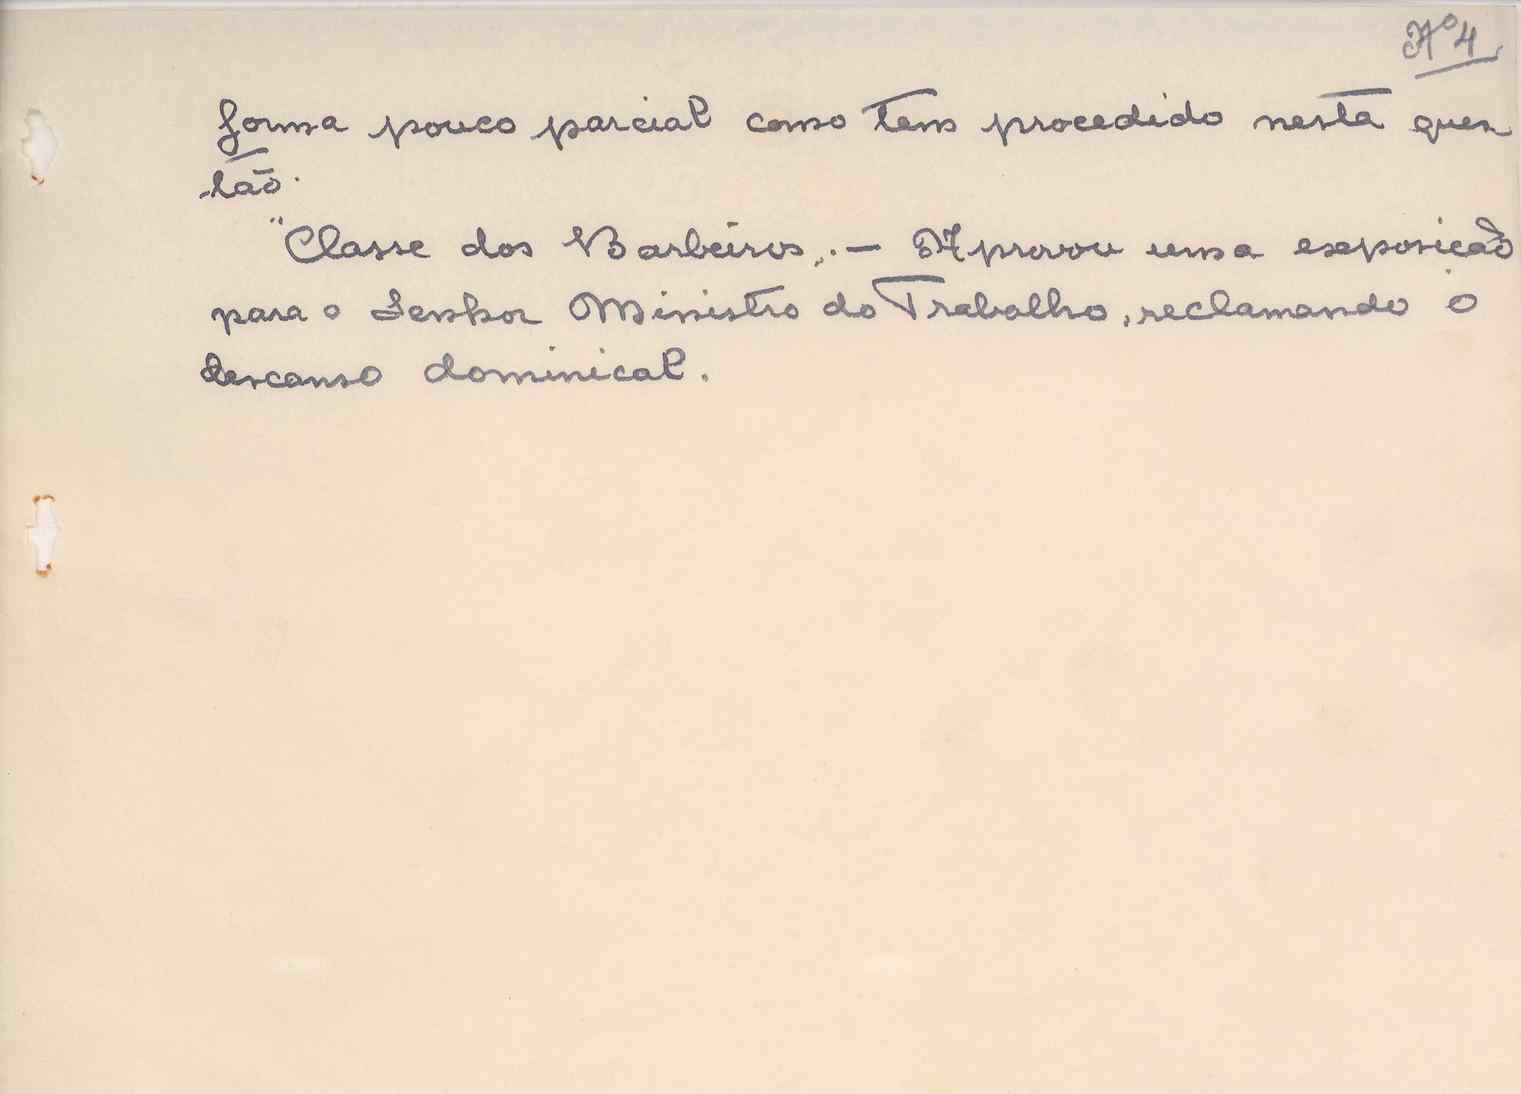 Nº 4
forma pouco parcial como tem procedido nesta ques
tão.
"Classe dos Barbeiros„.— Aprovou uma exposição
para o Senhor Ministro do Trabalho, reclamando o
descanso dominical.